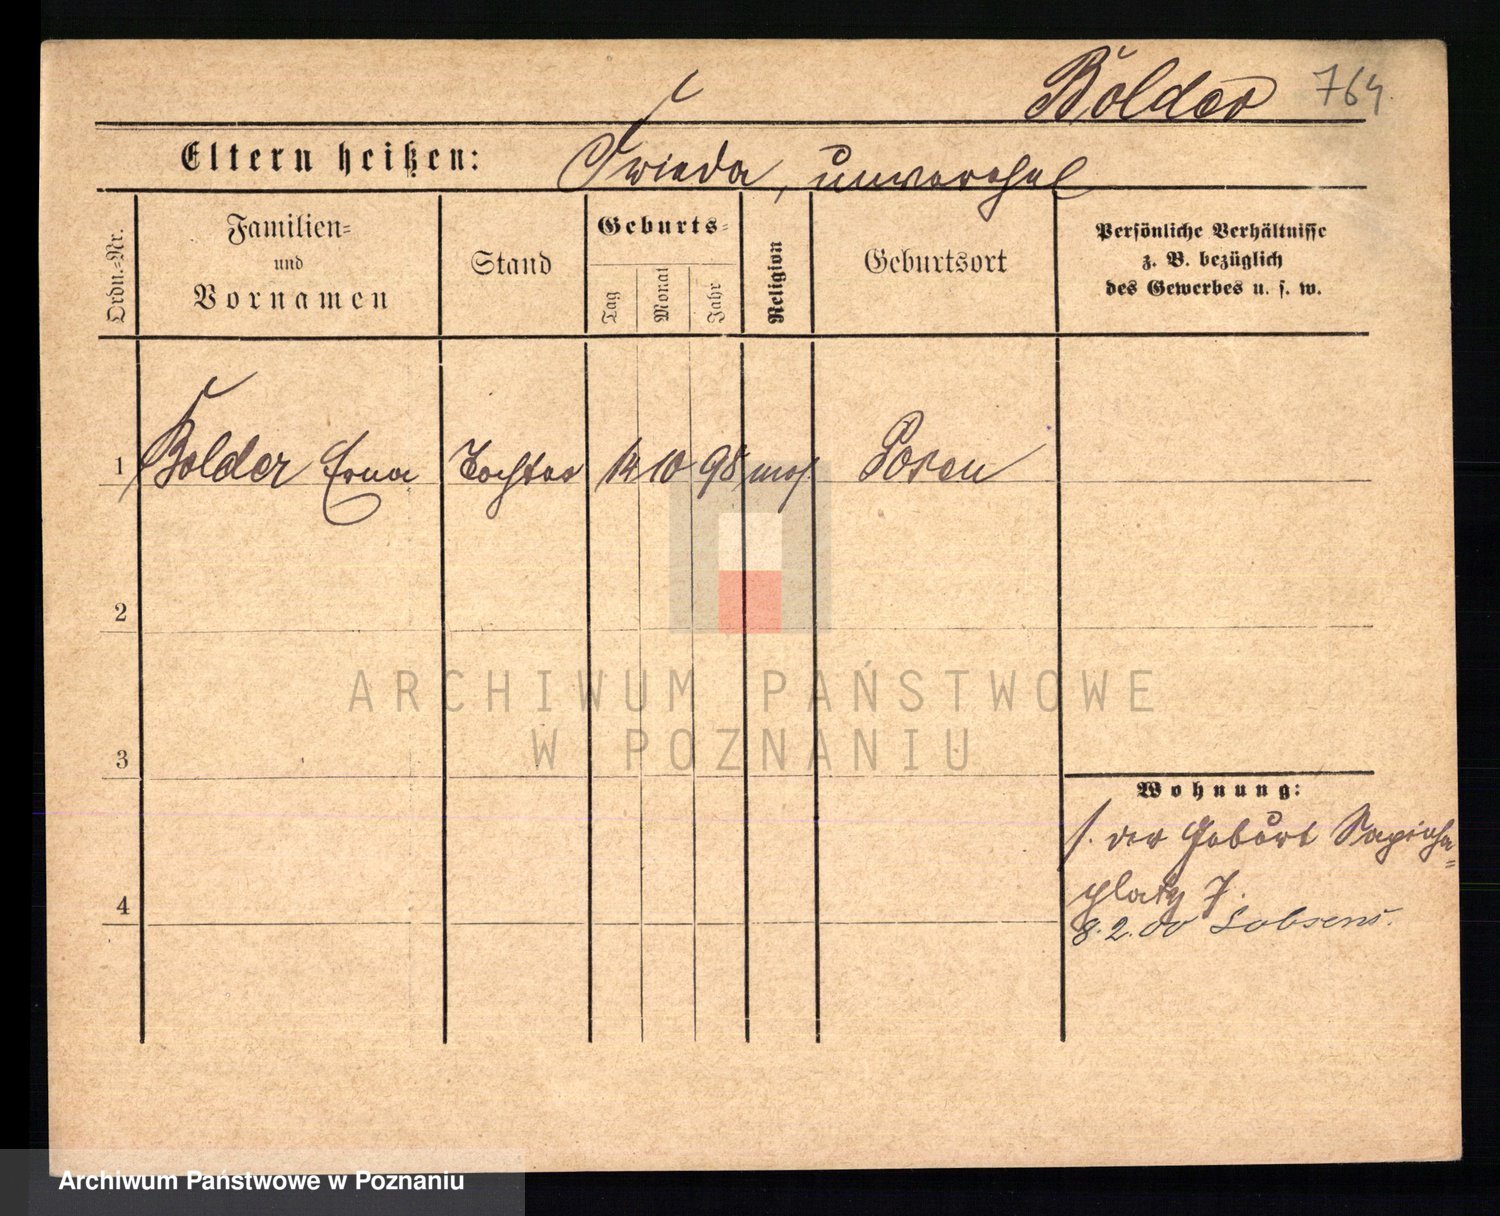 Bolder 764
Eltern heißen: Frieda, unverehel
Ordn.=Nr.
Familien=
und
Vornamen
Stand
Geburts=
Tag
Monat
Jahr
Religion
Geburtsort
Persönliche Verhältnisse
z. B. bezüglich
des Gewerbes u. s. w.
1 Bolder Erna Tochter 10 98 mos. Posen
2
3
4
Wohnung:
s. der Geburt Sapieha=
platz 7.
8.2.00 Lobsens.
ARCHIWUM PAŃSTWOWE
W POZNANIU
Archiwum Państwowe w Poznaniu